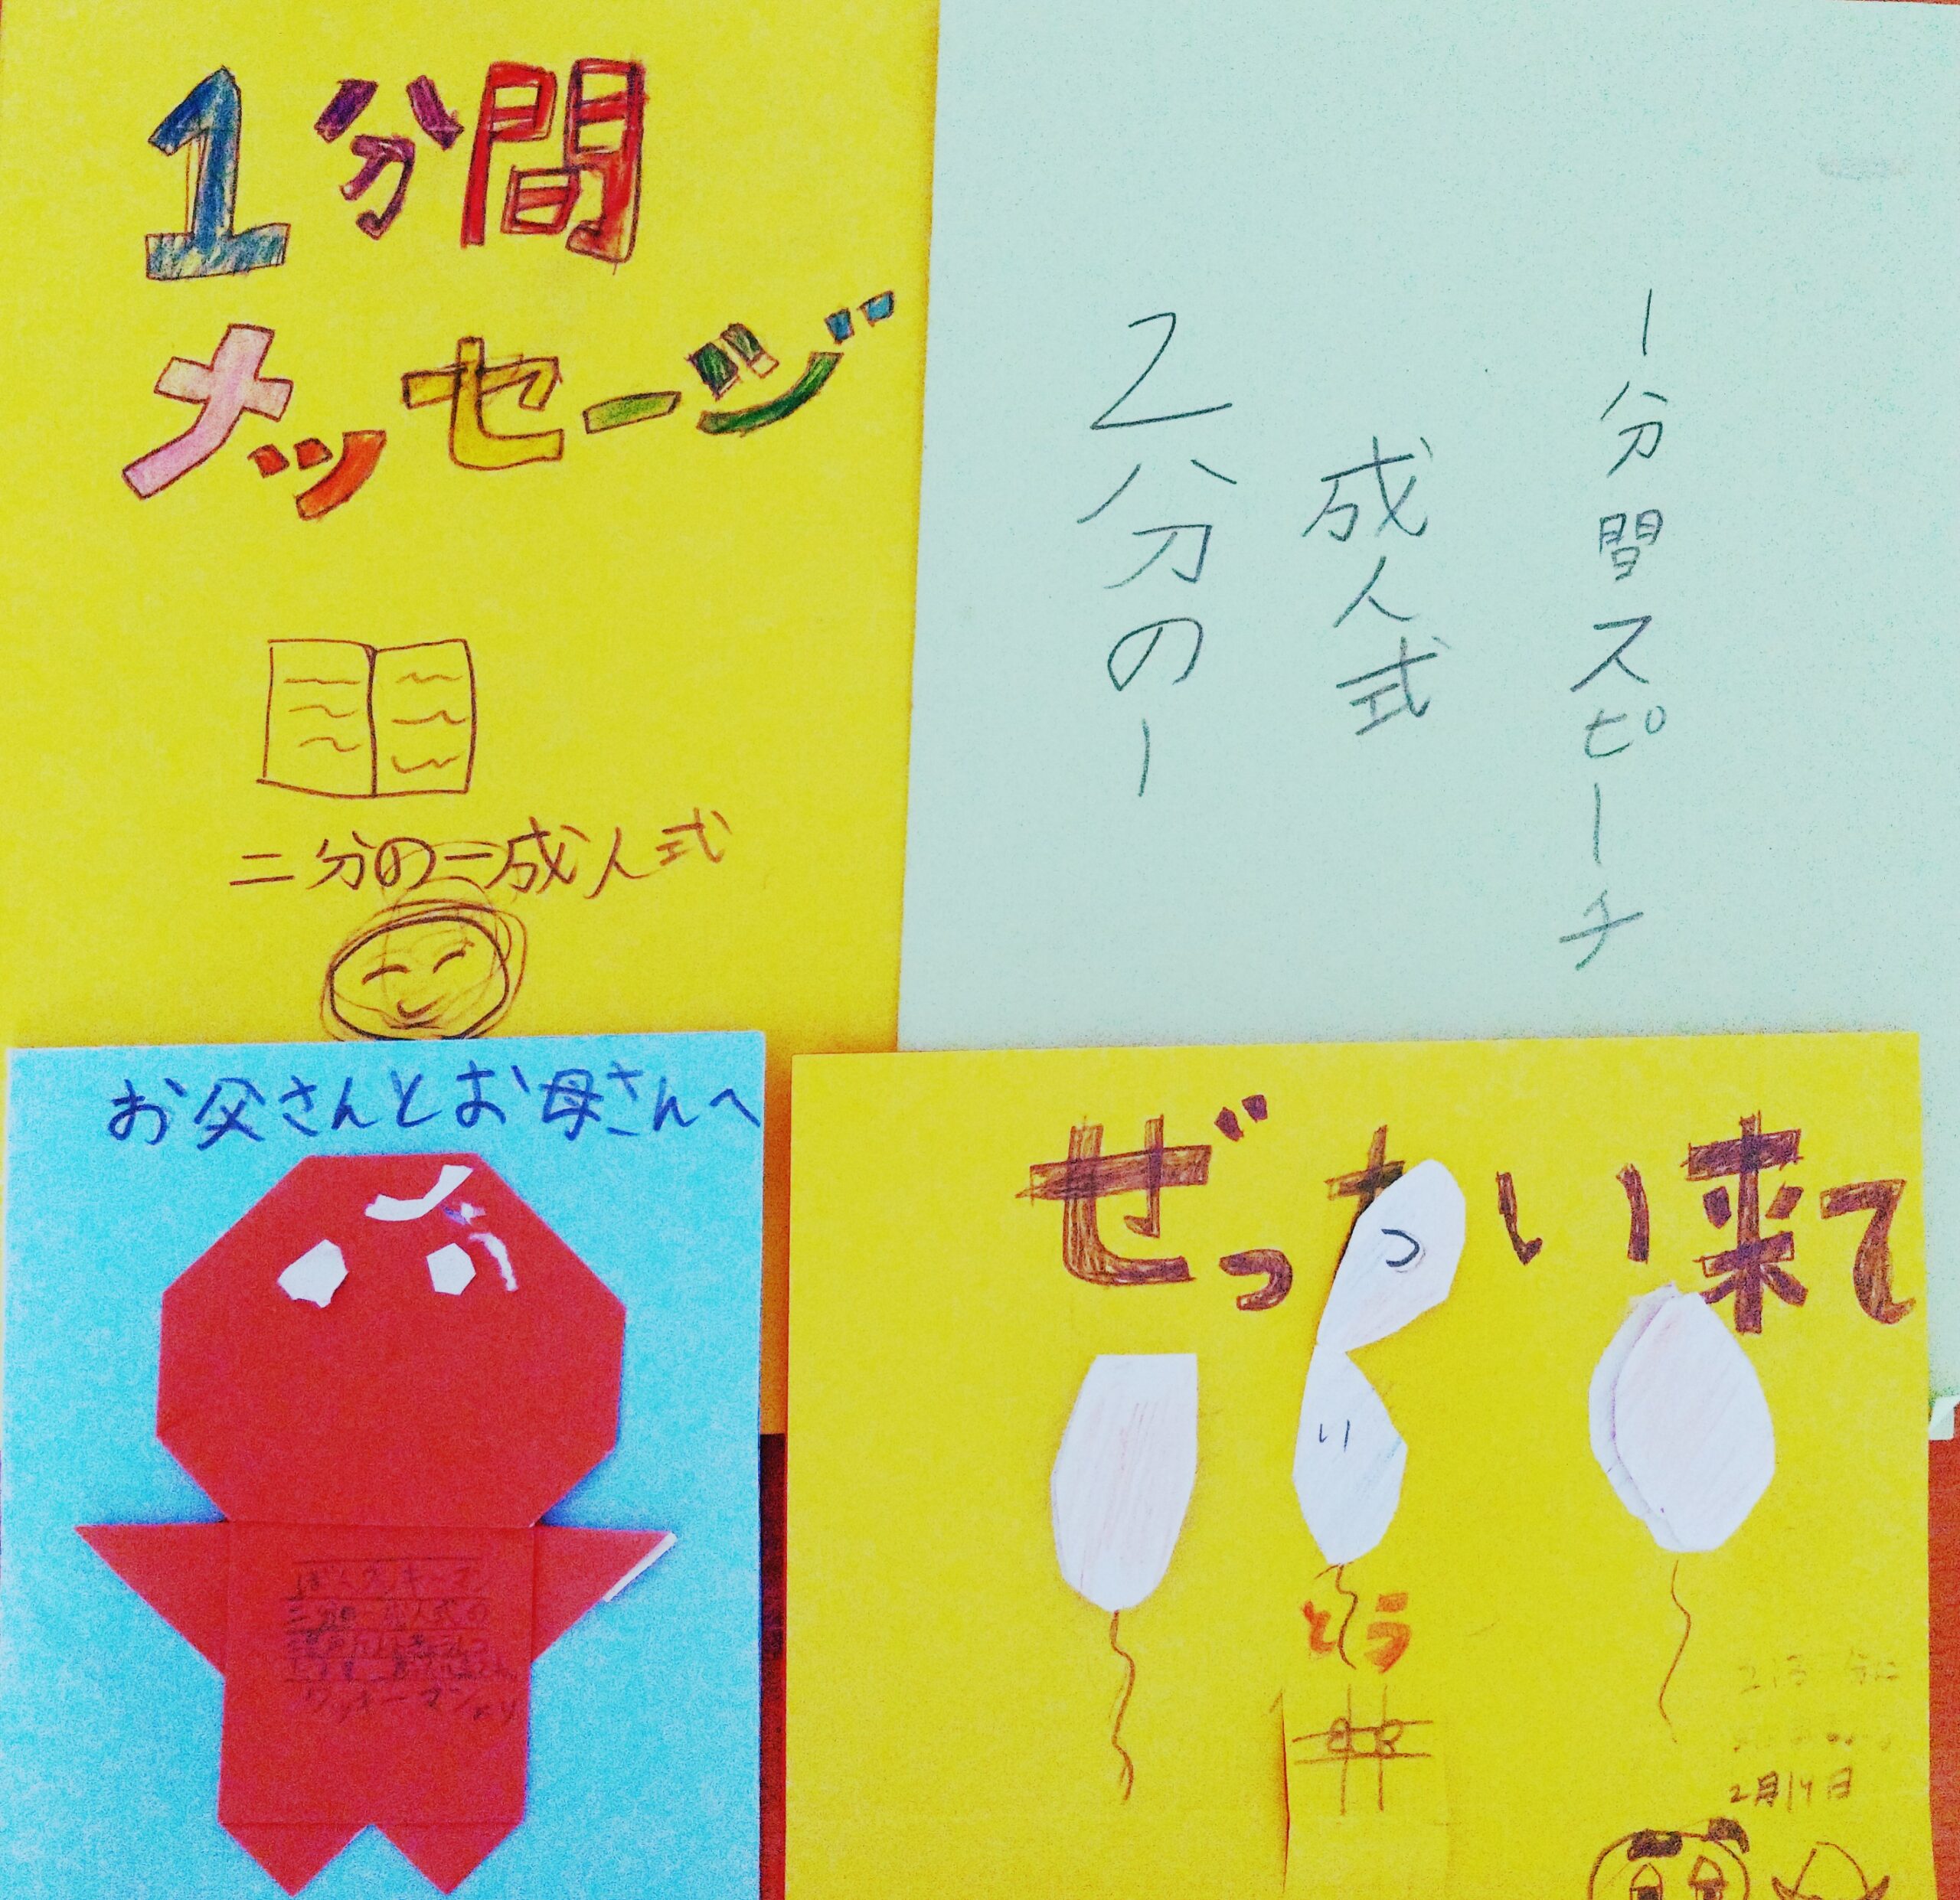 1分間
メッセージ
二分の一成人式
1分間スピーチ
成人式
2分の1
お父さんとお母さんへ
二分の一成人式の
ワッキーマンより
ぜったい来て
つ
い
とう
2月17日